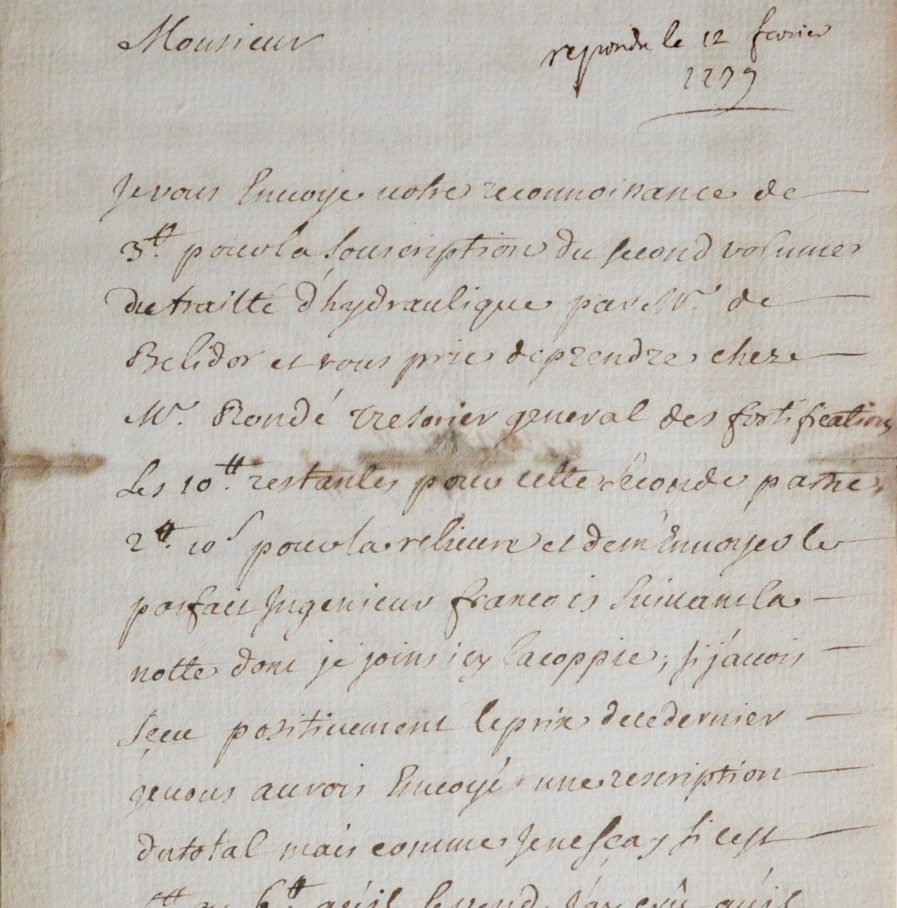 Monsieur
repondu le 12 fevrier
1739
Je vous Envoye votre reconnoissance de
3.tt pour la souscription du second volume
du traitté d'hydraulique par Mr. de
Belidor et vous prie de prendre chez
Mr. Rondé tresorier general des fortifications
Les 10.tt restantes pour cette seconde partie,
2.tt 10s pour la relieure et de m'Envoyer le
parfait Ingenieur francois suivant la
notte dont je joins icy la coppie; si j'avois
sçeu positivement le prix de ce dernier
je vous aurois Envoyé une rescription
du total mais comme je ne sçay si c'est
6.tt qu'il le vend, j'ay crû qu'il